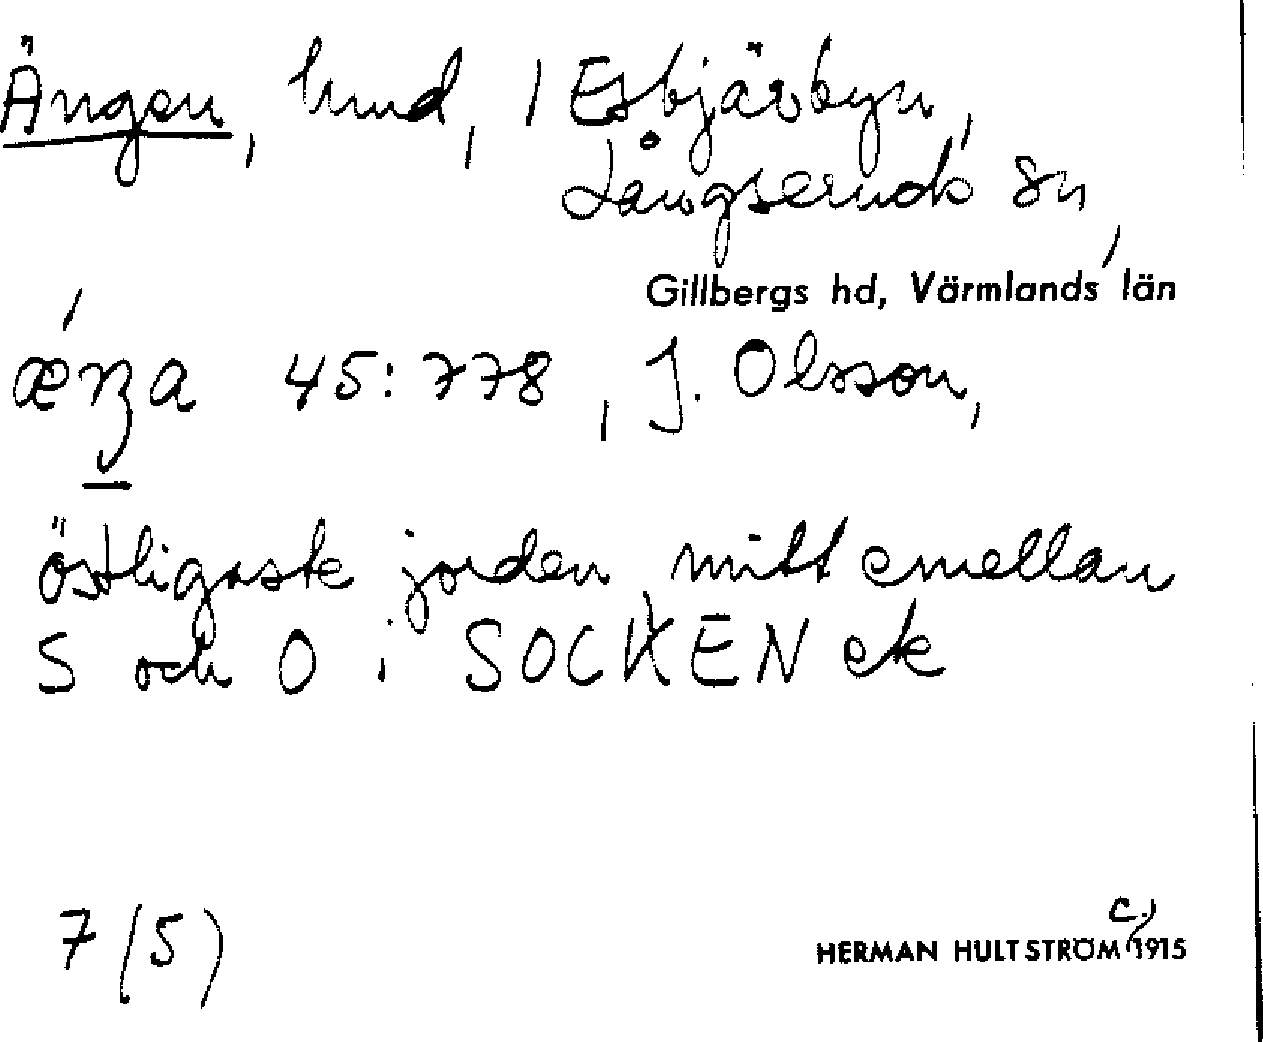 Ängen, hmd, 1 Esbjärbyn,
Långseruds sn,
Gillbergs hd, Värmlands län
45:778, J. Olsson,
östligaste jorden mitt emellan
S och O i SOCKEN ek
7 (5)
HERMAN HULTSTRÖM c. 1915